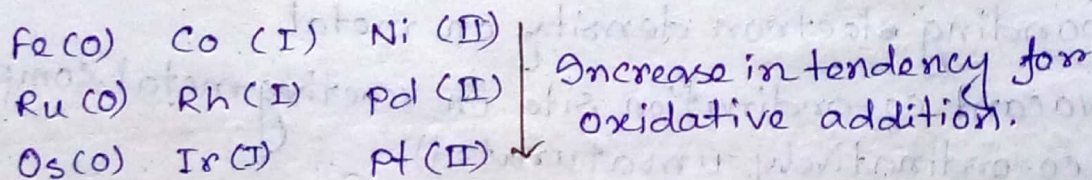 Fe (0) Co (I) Ni (II)
Ru (0) Rh (I) Pd (II)
Os (0) Ir (I) Pt (II)
Increase in tendency for
oxidative addition.